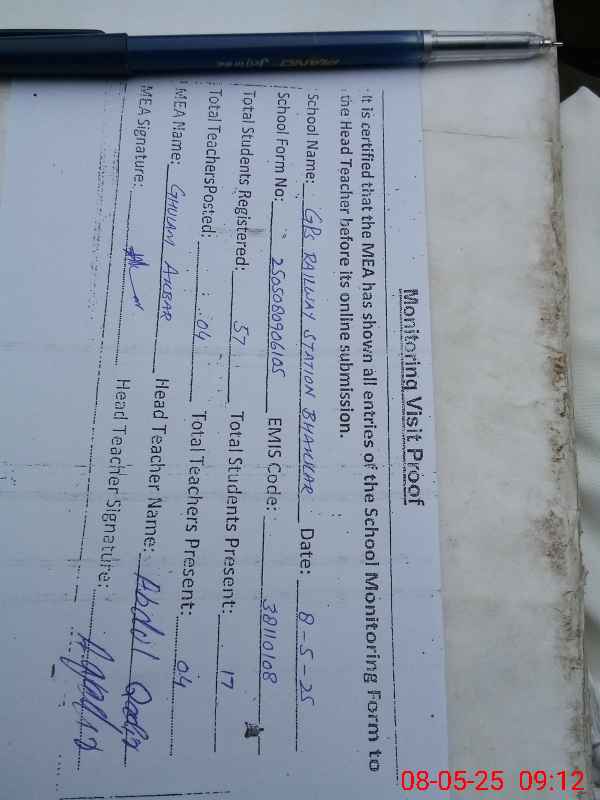 Monitoring Visit Proof
It is certified that the MEA has shown all entries of the School Monitoring Form to
the Head Teacher before its online submission.
School Name: GPS RAILWAY STATION BHAKKAR Date: 8-5-25
School Form No: 2505080906105 EMIS Code: 38110108
Total Students Registered: 57 Total Students Present: 17
Total TeachersPosted: 04 Total Teachers Present: 04
MEA Name: GHULAM AKBAR Head Teacher Name: Abdul Qadir
MEA Signature: Head Teacher Signature:
08-05-25 09:12